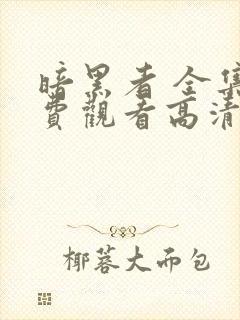 暗黑者全集
費觀看高清
椰蓉大而包